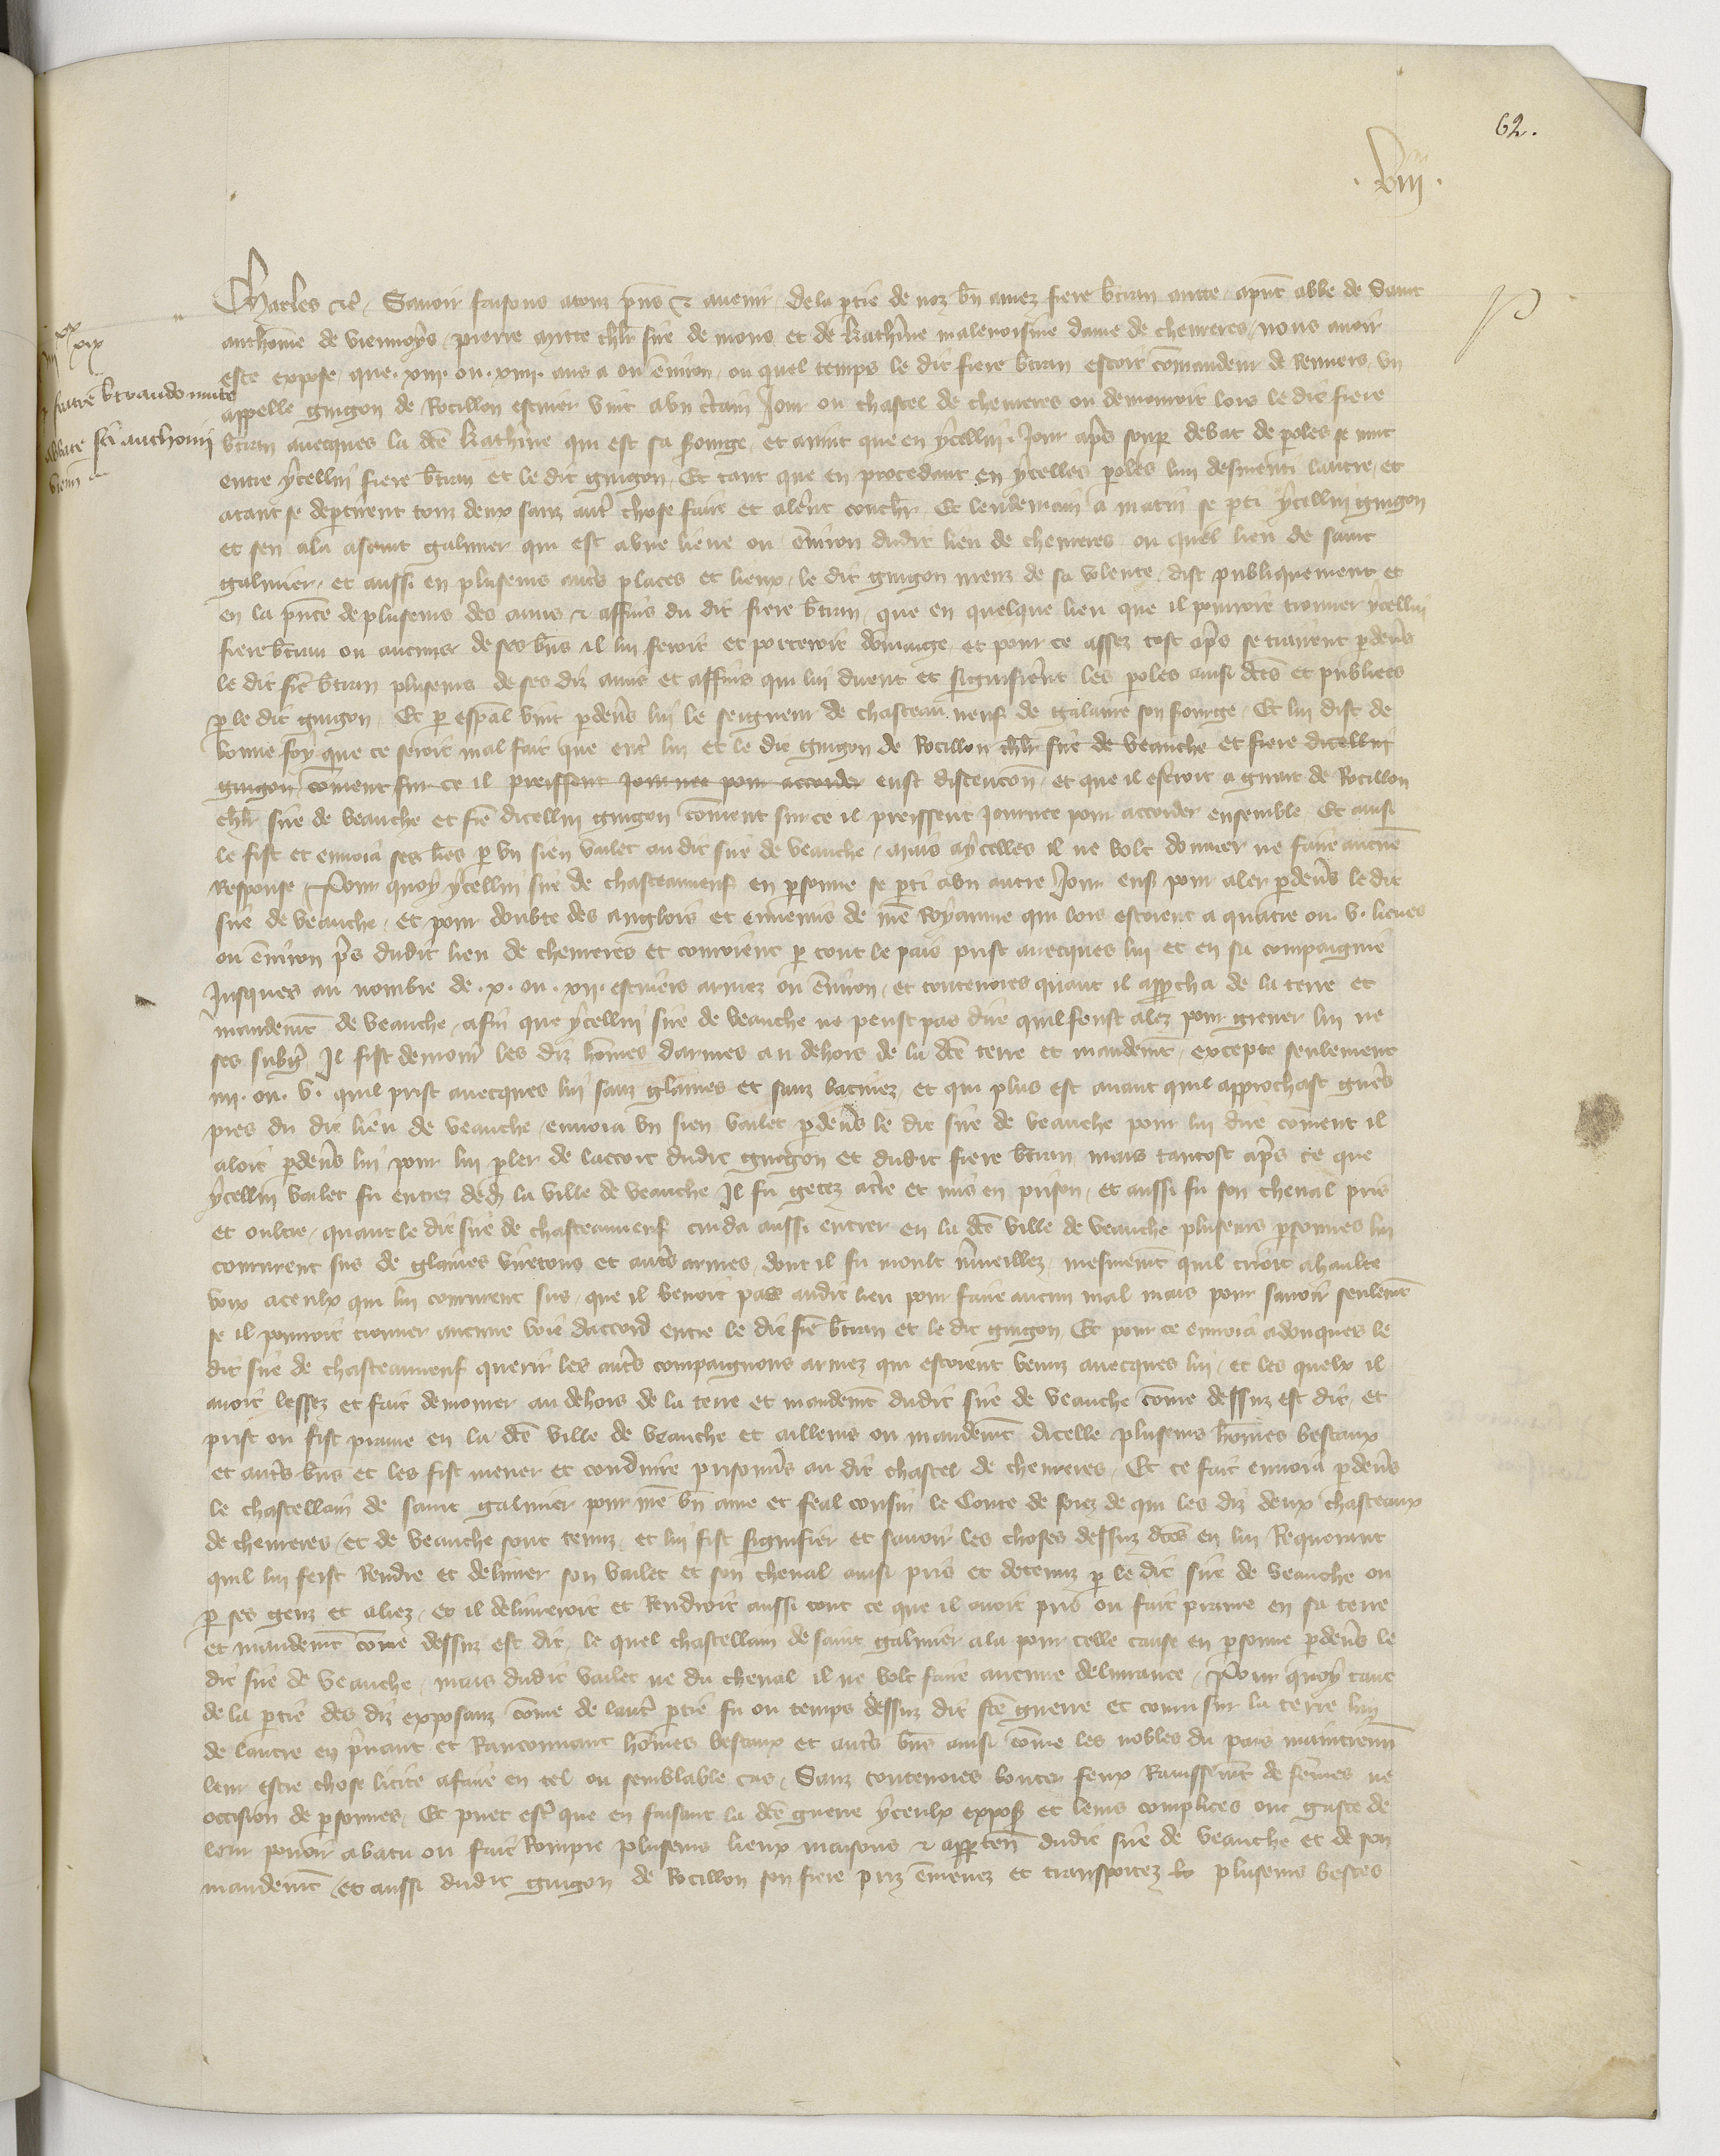 62.
.viii.
Charles etc. Savoir faisons a touz pñs et avenir de la ptie de noz bñ amez frere Btran mitte apñt abbe de Saint
anthoñe de viennoys, pierre mitte chlr sire de mons et de katherine malevoisine dame de chevreres, nous avoir
este expose que .xiii. ou .xiiii. ans a ou environ, ou quel temps le dit frere Btran estoit comandeur de Renvers, un
iiii xx xix
appelle guigon de Rocillon escuier vint a un ctain Jour ou chastel de chevreres ou demouroit lors le dit frere
p fratre btrando mitte
btran avecques la dte katherine qui est sa serourge, et avint que en ycellui Jour aps soup debat de poles se mut
abbate sci anthonij
vienn etc
entre ycellui frere btran et le dit guigon, Et tant que en procedant en ycelles poles lun desmenti lautre, et
atant se departirent touz deux sanz autre chose faire et alerent couchr Et lendemain a matin se pti ycellui guigon
et sen ala a saint galmier qui est a une lieue ou environ dudit lieu de chevreres ou quel lieu de saint
galmier, et aussi en pluseurs autres places et lieux, le dit guigon meuz de sa volente, dist publiquement et
en la pñce de pluseurs des amis et affins du dit frere btran, que en quelque lieu que il pourroit trouver ycellui
frere btran ou aucuns de ses bñs il lui feroit et porteroit domaige et pour ce assez tost aps se trairent pdevs
le dit fre btran pluseurs de ses diz amis et affins qui lui dirent et signifierent les poles ainsi dtes et publiees
p le dit guigon Et p espal vint pdevs lui le seigneur de chasteau neuf de galaure son serourge, Et lui dist de
bonne foy que ce seroit mal fait que entre lui et le dit guigon de Rocillon chlr sire de veauche et frere dicellui
guigon coment sur ce il preissent Journee pour accorder eust discencion, et que il escrivit a guiart de Rocillon
chlr sire de veauche et fre dicellui guigon coment sur ce il preissent Journee pour accorder ensemble Et ainsi
le fist et envoia ses lres p un sien vallet au dit sire de veauche, mais a ycelles il ne volt donner ne faire aucune
Response, Pour quoy ycellui sire de chasteauneuf en psonne se pti a un autre Jour ens pour aler pdevs le dit
sire de veauche, et pour doubte des anglois et ennemis de nre Royaume qui lors estoient a quatre ou v. lieues
ou environ pres dudit lieu de chevreres et couroient p tout le pais prist avecques lui et en sa compaignie
Jusques au nombre de .x. ou .xii. escuiers armez ou environ, et toutevoies quant il approcha de la terre et
mandement de veauche, afin que ycellui sire de veauche ne peust pas dire quil feust alez pour grever lui ne
ses subgez Il fist demourer les diz homes darmes au dehors de la dte terre et mandement, excepte seulement
iiii. ou. v. quil prist avecques lui sanz glaives et sanz bacinez, et qui plus est avant quil approchast gueres
pres du dit lieu de veauche, envoia un sien vallet pdevs le dit sire de veauche pour lui dire coment il
aloit pdevs lui pour lui pler de lacort dudit guigon et dudit frere btran mais tantost aps ce que
ycellui vallet fu entrez dedens la ville de veauche Il fu gecez a tre et mis en prison, et aussi fu son cheval pris
et oultre, quant le dit sire de chasteauneuf cuida aussi entrer en la dte ville de veauche pluseurs psonnes lui
coururent sus de glaives viretons et autres armes, dont il fu moult merveillez, mesmement quil crioit a haulte
voix a ceulx qui lui coururent sus, que il venoit pas audit lieu pour faire aucun mal mais pour savoir seulement
se il pourroit trouver aucune voie daccord entre le dit fre btran et le dit guigon Et pour ce envoia adonques le
dit sire de chasteauneuf querir les autres compaignons armez qui estoient venuz avecques lui, et les quelx il
avoit lessez et fait demourer au dehors de la terre et mandement dudit sire de veauche come dessuz est dit, et
prist ou fist prenre en la dte ville de veauche et ailleurs ou mandement dicelle pluseurs homes bestaux
et autres bñs et les fist mener et conduire prisonniers au dit chastel de chevreres, Et ce fait envoia pdevs
le chastellain de saint galmier pour nre bñ ame et feal cousin le Conte de forez de qui les diz deux chasteaux
de chevreres, et de veauche sont tenuz, et lui fist signifier et savoir les choses dessuz dtes en lui Requerant
quil lui feist Rendre et delivrer son vallet et son cheval ainsi pris et detenuz p le dit sire de veauche ou
p ses genz et aliez, et il delivreroit et Rendroit aussi tout ce que il avoit pris ou fait prenre en sa terre
et mandement come dessuz est dit, le quel chastellain de saint galmier ala pour celle cause en psonne pdevs le
dit sire de veauche, mais dudit vallet ne du cheval il ne volt faire aucune delivrance, Pour quoy tant
de la ptie des diz exposanz come de lautre ptie fu ou temps dessuz dit fte guerre et couru sur la terre lun
de lautre en prenant et Ranconnant homes bestaux et autres bñs ainsi come les nobles du pais maintienn
leur estre chose licite a faire en tel ou semblable cas, Sanz toutevoies bouter feux Ravissement de femes ne
occision de psonnes, Et puet estre que en faisant la dte guerre yceulx expos et leurs complices ont gaste de
leur povoir abatu ou fait Rompre pluseurs lieux maisons et apptenn dudit sire de veauche et de son
mandement, et aussi dudit guigon de Rocillon son frere priz emmenez et transportez pluseurs bestes